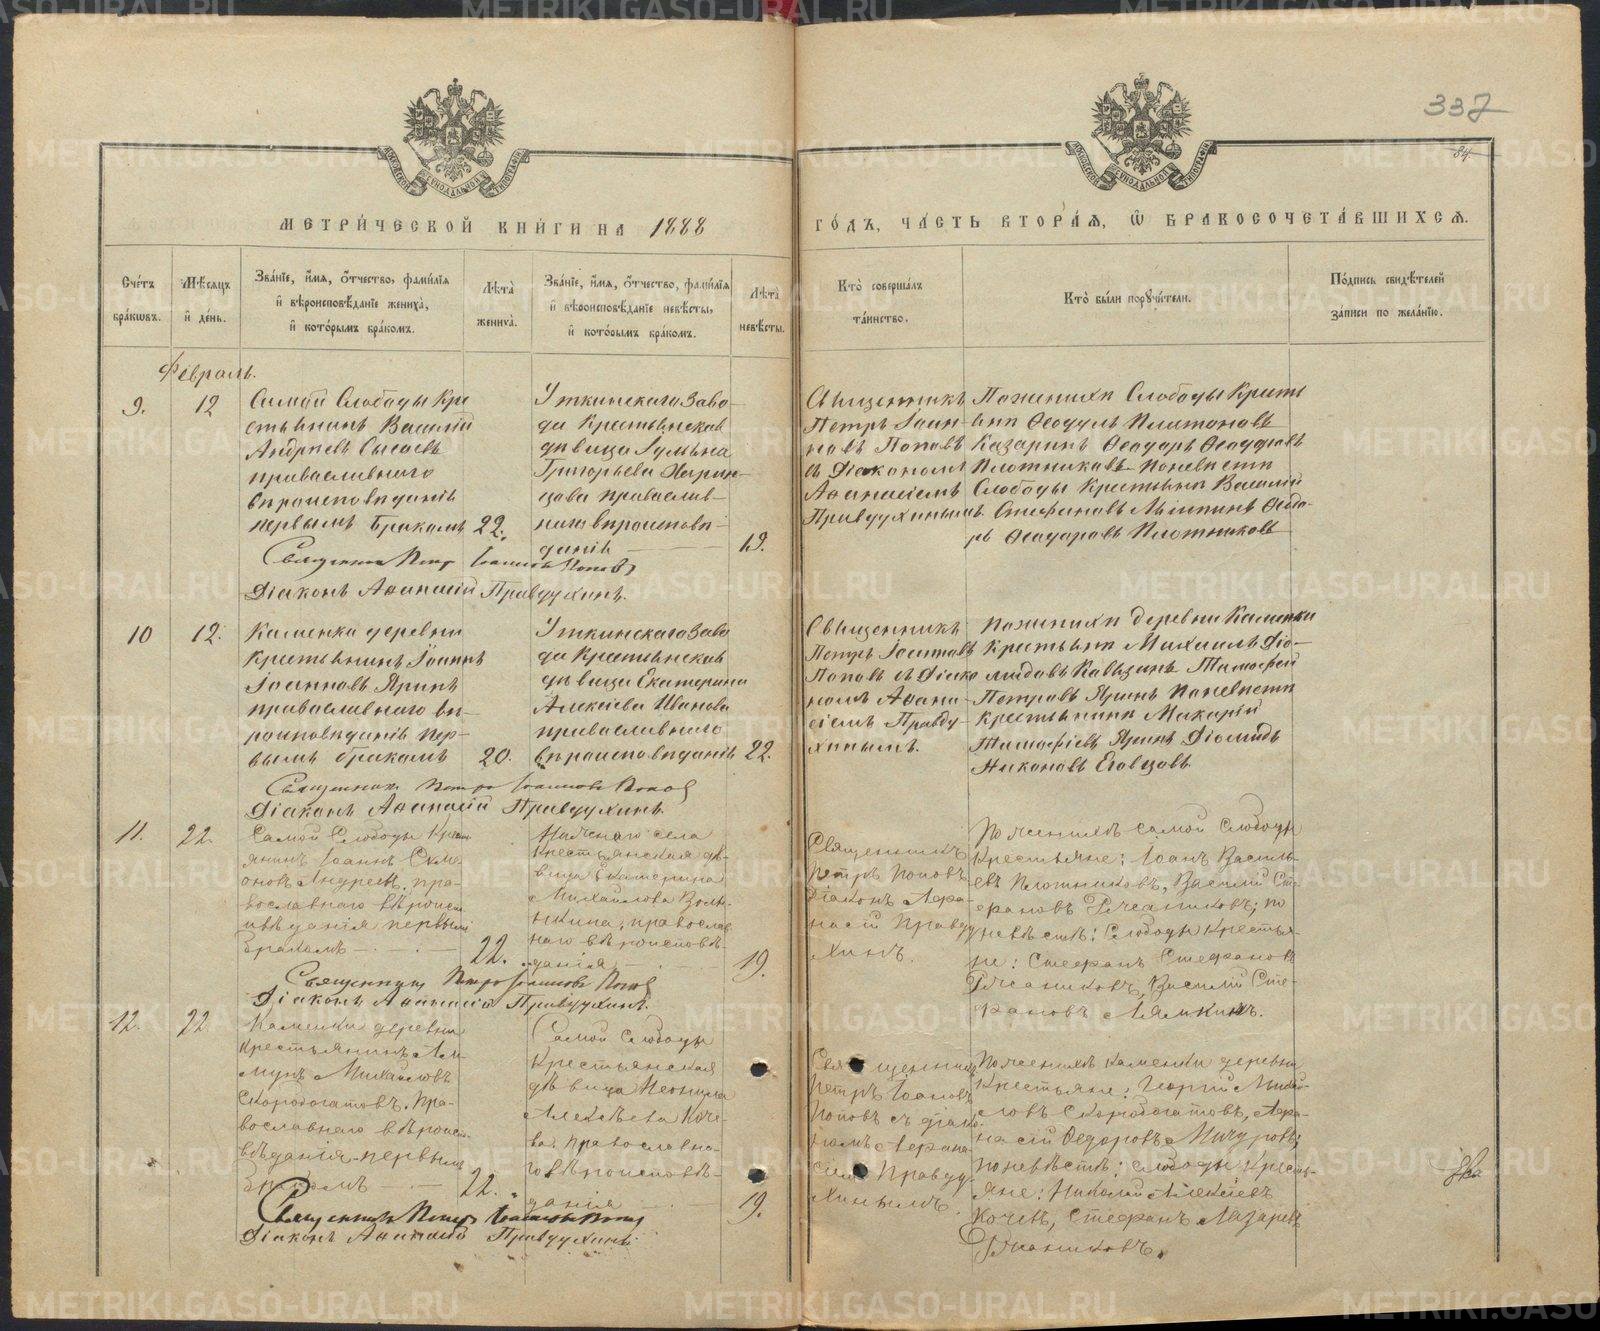 337
84
МЕТРИ́ЧЕСКОЙ КНИ́ГИ НА 1888
ГО́ДЪ, ЧА́СТЬ ВТОРА́Я, Ѽ БРАКОСОЧЕТА́ВШИХСЯ.
Сче́тъ бра́кѡвъ.
Мѣ́сяцъ и҆ де́нь.
Зва́нїе, и҆́мя, ѻ҆́тчество, фами́лїя и҆ вѣроисповѣ́данїе жениха̀, и҆ кото́рымъ бра́комъ.
Лѣ́та жениха̀.
Зва́нїе, и҆́мя, ѻ҆́тчество, фами́лїя и҆ вѣроисповѣ́данїе невѣ́сты, и҆ кото́рымъ бра́комъ.
Лѣ́та невѣ́сты.
Кто̀ соверша́лъ та́инство.
Кто̀ бы́ли порꙋчи́тели.
По́дпись свидѣ́телей за́писи по жела́нїю.
Февраль.
9.
12
Самой Слободы Кре
стьянинъ Василій
Андреевъ Сысоевъ
православнаго
вѣроисповѣданія
первымъ бракомъ
22.
Уткинскаго Заво-
да Крестьянская
дѣвица
Григорьева
православ-
наго вѣроисповѣ-
данія
19.
Священникъ
Петръ Іоан-
новъ Поповъ
съ Діакономъ
Аѳанасіемъ
Правдухинымъ
По женихѣ Слободы Кресть
яне Ѳеодулъ Платоновъ
Казаринъ Ѳеодоръ
Плотниковъ по невѣстѣ
Слободы Крестьяне Василій
Стефановъ
ръ Ѳеодоровъ Плотниковъ
Священникъ Петръ Іоанновъ Поповъ
Діаконъ Аѳанасій Правдухинъ.
10
12.
Каменки деревни
Крестьянинъ Іоаннъ
Іоанновъ Яринъ
православнаго вѣ-
роисповѣданія пер-
вымъ бракомъ
20.
Уткинскаго Заво
да Крестьянская
дѣвица Екатерина
Алексѣева Иванова
православнаго
вѣроисповѣданія
22.
Священникъ
Петръ Іоанновъ
Поповъ съ Діако
номъ Аѳана-
сіемъ Правду-
хинымъ.
По женихѣ деревни Каменки
Крестьяне Михаилъ Діо-
мидовъ Тимофей
Петровъ Яринъ по невѣстѣ
Крестьянинъ Макарій
Тимофеевъ Яринъ Діомидъ
Никоновъ
Священникъ Петръ Іоанновъ Поповъ
Діаконъ Аѳанасій Правдухинъ.
11.
22.
Самой Слободы Крест
янинъ Іоаннъ Симе-
оновъ Андреевъ, пра-
вославнаго вѣроиспо
вѣданія первымъ
бракомъ
22.
села
Крестьянская дѣ-
вица Екатерина
Михайлова Волы-
нкина, православ
наго вѣроисповѣ-
данія
19.
Священникъ
Петръ Поповъ
Діаконъ Аѳа-
насій Правду
хинъ.
По женихѣ самой Слободы
Крестьяне: Іоанъ Василь-
евъ Плотниковъ, Василій Сте
фановъ Рѫсаниковъ; по
невѣстѣ: Слободы Крестья-
не: Стефанъ Стефановъ
Василій Сте-
фановъ Лямкинъ.
Священникъ Петръ Іоанновъ Поповъ
Діаконъ Аѳанасій Правдухинъ.
12.
22.
Каменки деревни
Крестьянинъ
Михайловъ
Скоробогатовъ, пра-
вославнаго вѣроиспо-
вѣданія первымъ
бракомъ
22.
Самой Слободы
Крестьянская
дѣвица Неонила
Алексѣева Коче-
ва, православна-
го вѣроисповѣ-
данія
19.
Священникъ
Петръ Іоановъ
Поповъ съ діако-
номъ Афана-
сіемъ Правду-
хинымъ.
По женихѣ Каменки деревни
Крестьяне: Георгій Михай-
ловъ Скоробогатовъ, Афа-
насій Федоровъ Мичуровъ;
по невѣстѣ: Слободы Кресть-
яне: Николай Алексѣевъ
Кочевъ, Стефанъ Лазаревъ
два
Священникъ Петръ Іоанновъ Поповъ
Діаконъ Аѳанасій Правдухинъ
METRIKI.GASO-URAL.RU